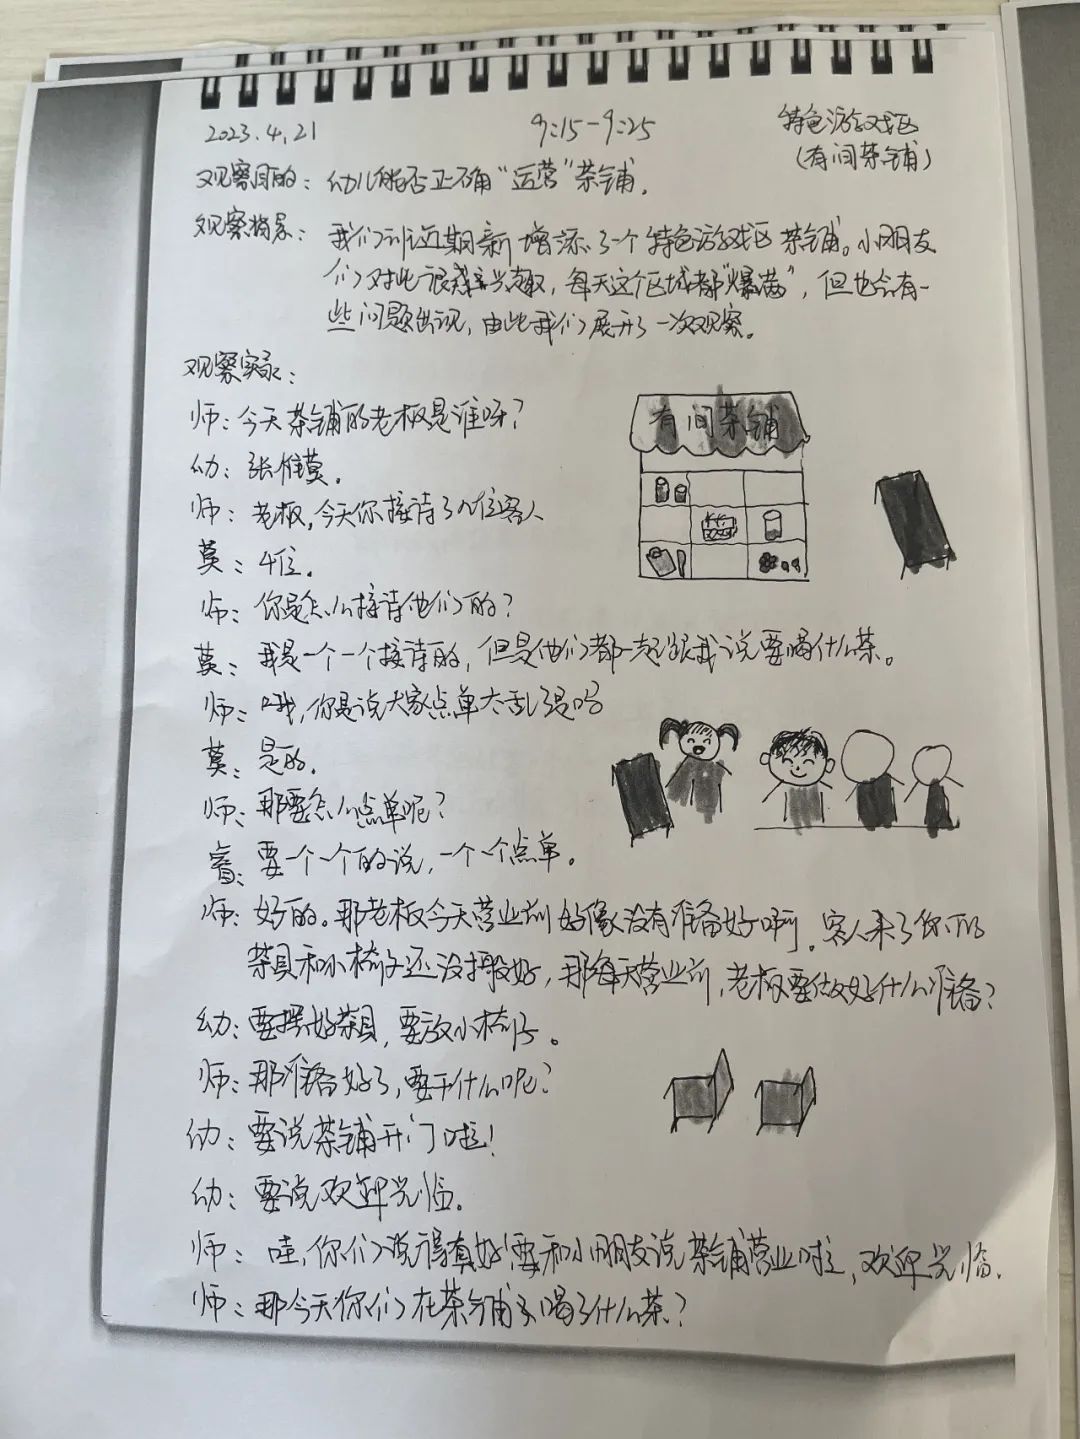 2023.4.21 9:15-9:25 特色游戏区
(有间茶铺)
观察目的：幼儿能否正确“运营”茶铺.
观察背景：我们班近期新增添了一个特色游戏区茶铺。小朋友
们对此很感兴趣，每天这个区域都“爆满”，但也会有一
些问题出现，由此我们展开了一次观察。
观察实录：
师：今天茶铺的老板是谁呀？
有间茶铺
幼：张惟莫.
师：老板，今天你接待了几位客人
莫：4位.
师：你是怎么接待他们的？
莫：我是一个一个接待的，但是他们都一起跟我说要喝什么茶。
师：哦，你是说大家点单太乱了是吗
莫：是的.
师：那要怎么点单呢？
睿：要一个一个的说，一个一个点单。
师：好的。那老板今天营业前好像没有准备好啊，客人来了你的
茶具和小椅子还没摆好，那每天营业前，老板要做好什么准备？
幼：要摆好茶具，要放小椅子。
师：那准备好了，要干什么呢？
幼：要说茶铺开门啦！
幼：要说欢迎光临。
师：哇，你们说得真好！要和小朋友说茶铺营业啦，欢迎光临.
师：那今天你们在茶铺里喝了什么茶？